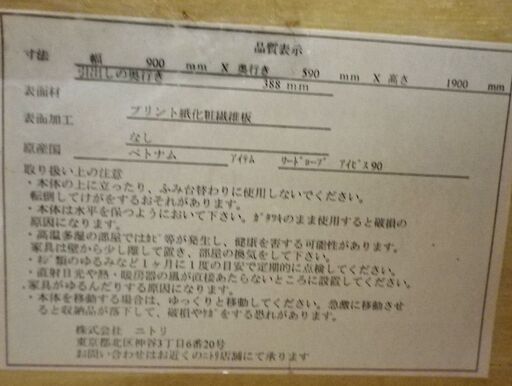 品質表示
寸法 幅 900 mm X 奥行き 590 mm X 高さ 1900 mm
引出しの奥行き 388 mm
表面材
プリント紙化粧繊維板
表面加工
なし
原産国 ベトナム アイテム ワードローブ アイビス90
取り扱い上の注意
・本体の上に立ったり、ふみ台替わりに使用しないでください。
転倒してけがをするおそれがあります。
・本体は水平を保つようにおいて下さい。ガタツキのまま使用すると破損の
原因になります。
・高温多湿の部屋ではカビ等が発生し、健康を害する可能性があります。
家具は壁から少し離して置き、部屋の換気をして下さい。
・ネジ類のゆるみなど1ヶ月に1度の目安で定期的に点検してください。
・直射日光や熱・暖房器の風が直接あたらないところに設置してください。
家具がゆるんだりする原因になります。
・本体を移動する場合は、ゆっくりと移動してください。急激に移動させ
ると収納品が落下して、破損やケガをする恐れがあります。
株式会社 ニトリ
東京都北区神谷3丁目6番20号
お問い合わせはお近くのニトリ店舗にて承ります